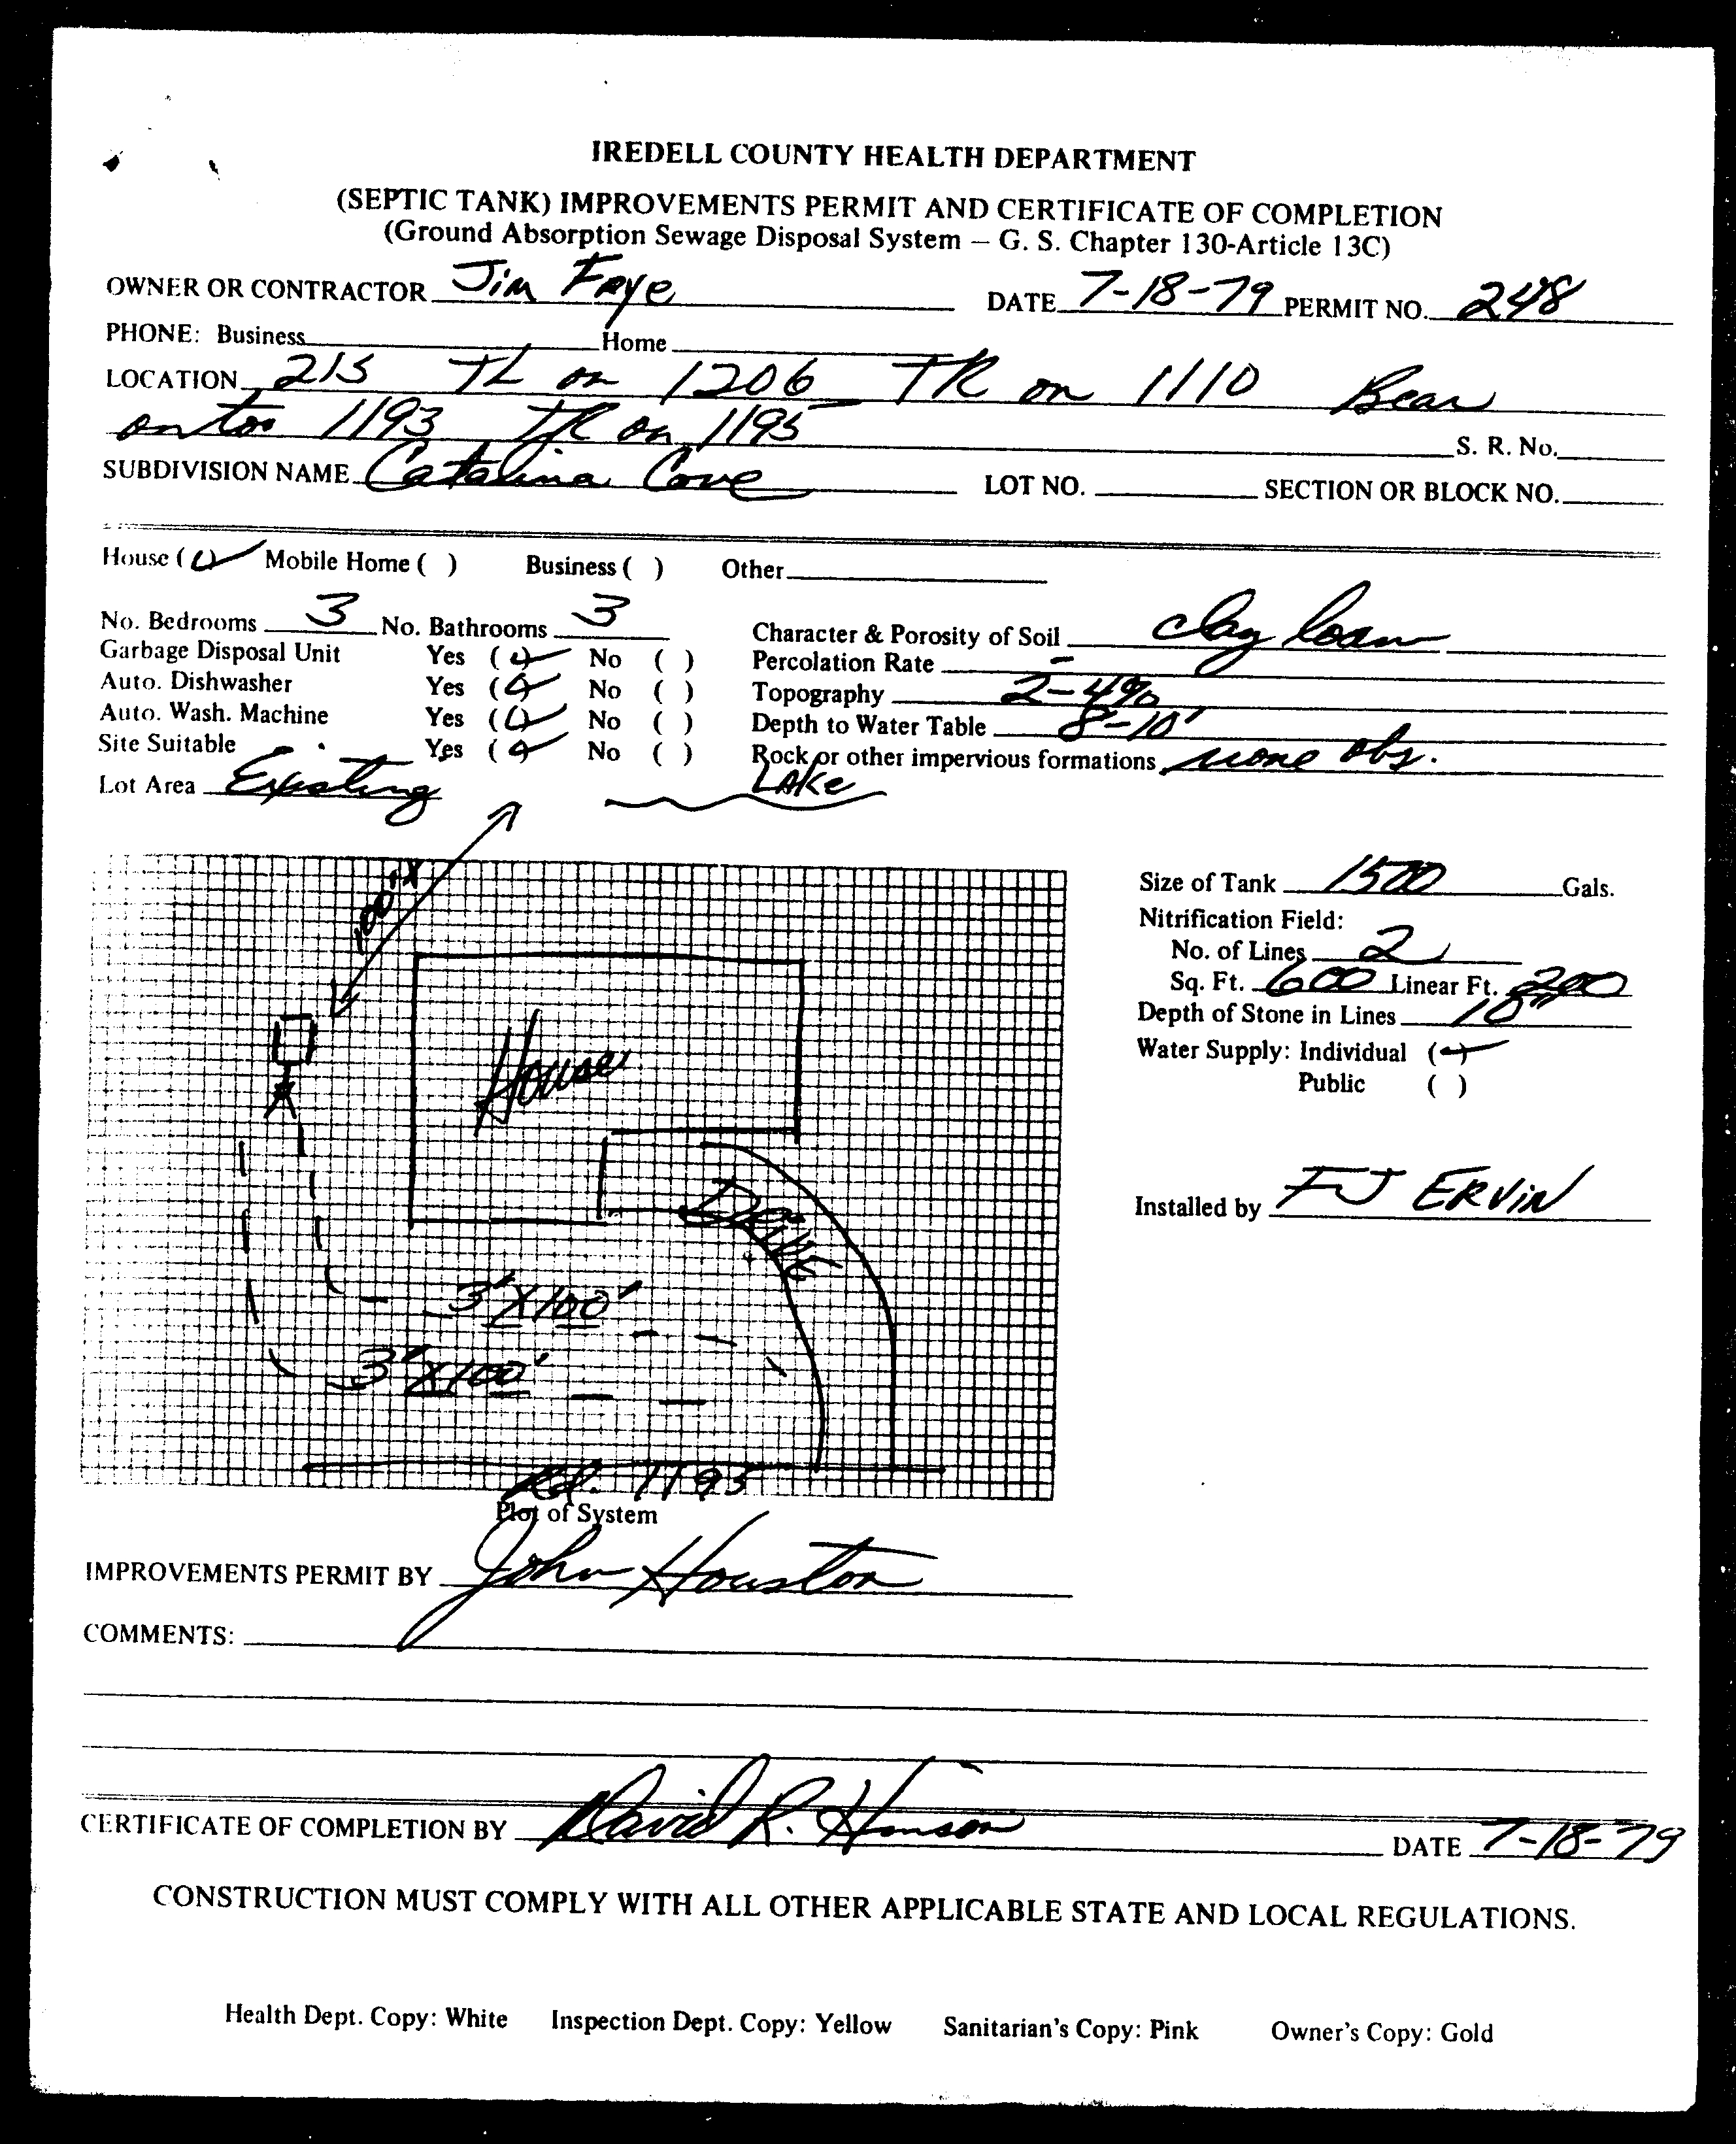 IREDELL COUNTY HEALTH DEPARTMENT
(SEPTIC TANK) IMPROVEMENTS PERMIT AND CERTIFICATE OF COMPLETION
(Ground Absorption Sewage Disposal System – G. S. Chapter 130-Article 13C)
OWNER OR CONTRACTOR Jim Frye DATE 7-18-79 PERMIT NO. 248
PHONE: Business Home
LOCATION 21S TL on 1206 TR on 1110 Bear
onto 1193 TR on 1195 S. R. No.
SUBDIVISION NAME Catalina Cove LOT NO. SECTION OR BLOCK NO.
House (✓) Mobile Home ( ) Business ( ) Other
No. Bedrooms 3 No. Bathrooms 3 Character & Porosity of Soil clay loam
Garbage Disposal Unit Yes (✓) No ( ) Percolation Rate –
Auto. Dishwasher Yes (✓) No ( ) Topography 2-4%
Auto. Wash. Machine Yes (✓) No ( ) Depth to Water Table 8-10'
Site Suitable Yes (✓) No ( ) Rock or other impervious formations none obs.
Lot Area Existing
LAKE
100'+
House
Drive
3'X100'
3'X100'
Rd. 1195
Plot of System
Size of Tank 1500 Gals.
Nitrification Field:
No. of Lines 2
Sq. Ft. 600 Linear Ft. 200
Depth of Stone in Lines 10"
Water Supply: Individual (✓)
Public ( )
Installed by FJ ERVIN
IMPROVEMENTS PERMIT BY John Houston
COMMENTS:
CERTIFICATE OF COMPLETION BY David R. Hinson DATE 7-18-79
CONSTRUCTION MUST COMPLY WITH ALL OTHER APPLICABLE STATE AND LOCAL REGULATIONS.
Health Dept. Copy: White Inspection Dept. Copy: Yellow Sanitarian's Copy: Pink Owner's Copy: Gold